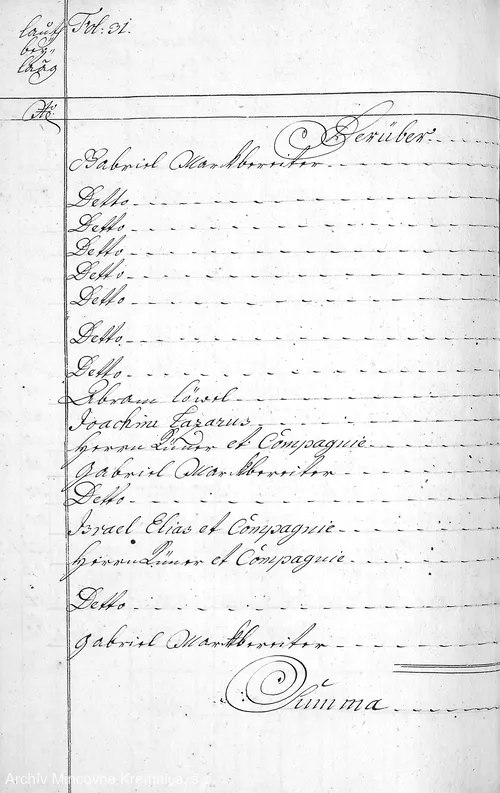 Fol: 31.
lauth
bey-
laag
No
Herüber
Gabriel Markbereiter
Detto
Detto
Detto
Detto
Detto
Detto
Detto
Abram Löwel
Joachim Lazarus
Herrn et Compagnie
Gabriel Markbereiter
Detto
Israel Elias et Compagnie
Herrn et Compagnie
Detto
Gabriel Markbereiter
Summa
Archív Mincovne Kremnica, š.p.